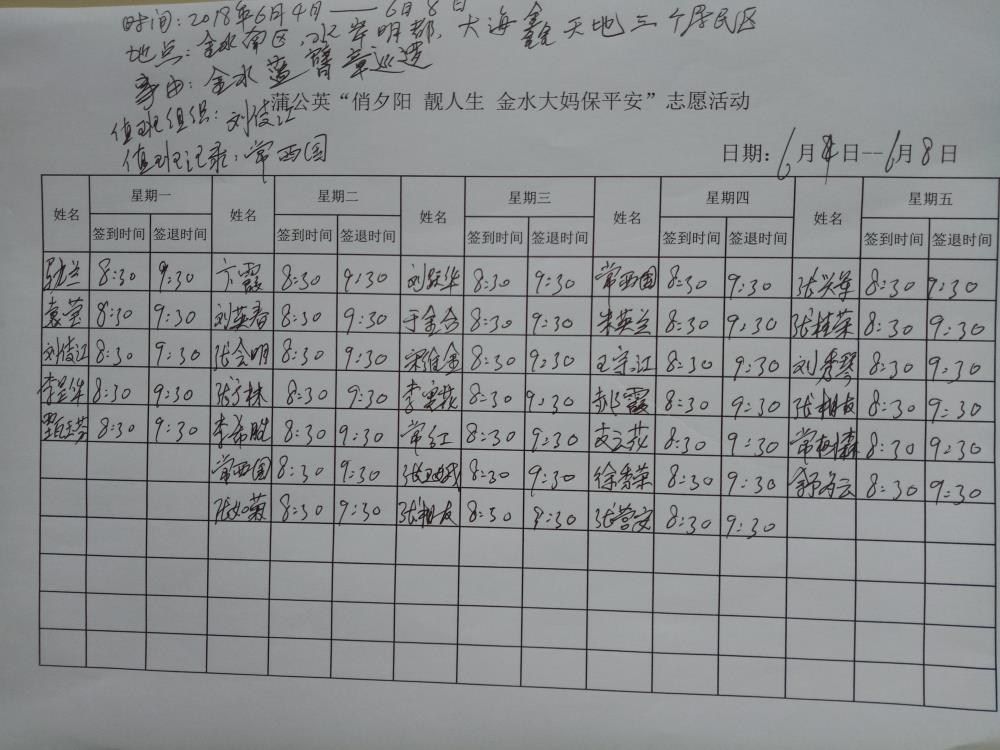 时间:2018年6月4日——6月8日
地点:金水南区,水岸明都,大海鑫天地三个居民区
事由:金水蓝臂章巡逻
蒲公英“俏夕阳 靓人生 金水大妈保平安”志愿活动
值班组织:刘俊江
值班记录:常西国
日期:6月4日--6月8日
姓名 星期一 姓名 星期二 姓名 星期三 姓名 星期四 姓名 星期五
签到时间 签退时间 签到时间 签退时间 签到时间 签退时间 签到时间 签退时间 签到时间 签退时间
8:30 9:30 方霞 8:30 9:30 刘跃华 8:30 9:30 常西国 8:30 9:30 张兴荣 8:30 9:30
袁莹 8:30 9:30 刘英春 8:30 9:30 于金合 8:30 9:30 朱英兰 8:30 9:30 张桂荣 8:30 9:30
刘俊江 8:30 9:30 张会明 8:30 9:30 宋维金 8:30 9:30 王守江 8:30 9:30 刘秀琴 8:30 9:30
8:30 9:30 8:30 9:30 8:30 9:30 8:30 9:30 张相友 8:30 9:30
8:30 9:30 8:30 9:30 常红 8:30 9:30 8:30 9:30 常树森 8:30 9:30
常西国 8:30 9:30 8:30 9:30 徐秀荣 8:30 9:30 8:30 9:30
张如菊 8:30 9:30 张相友 8:30 9:30 张营安 8:30 9:30